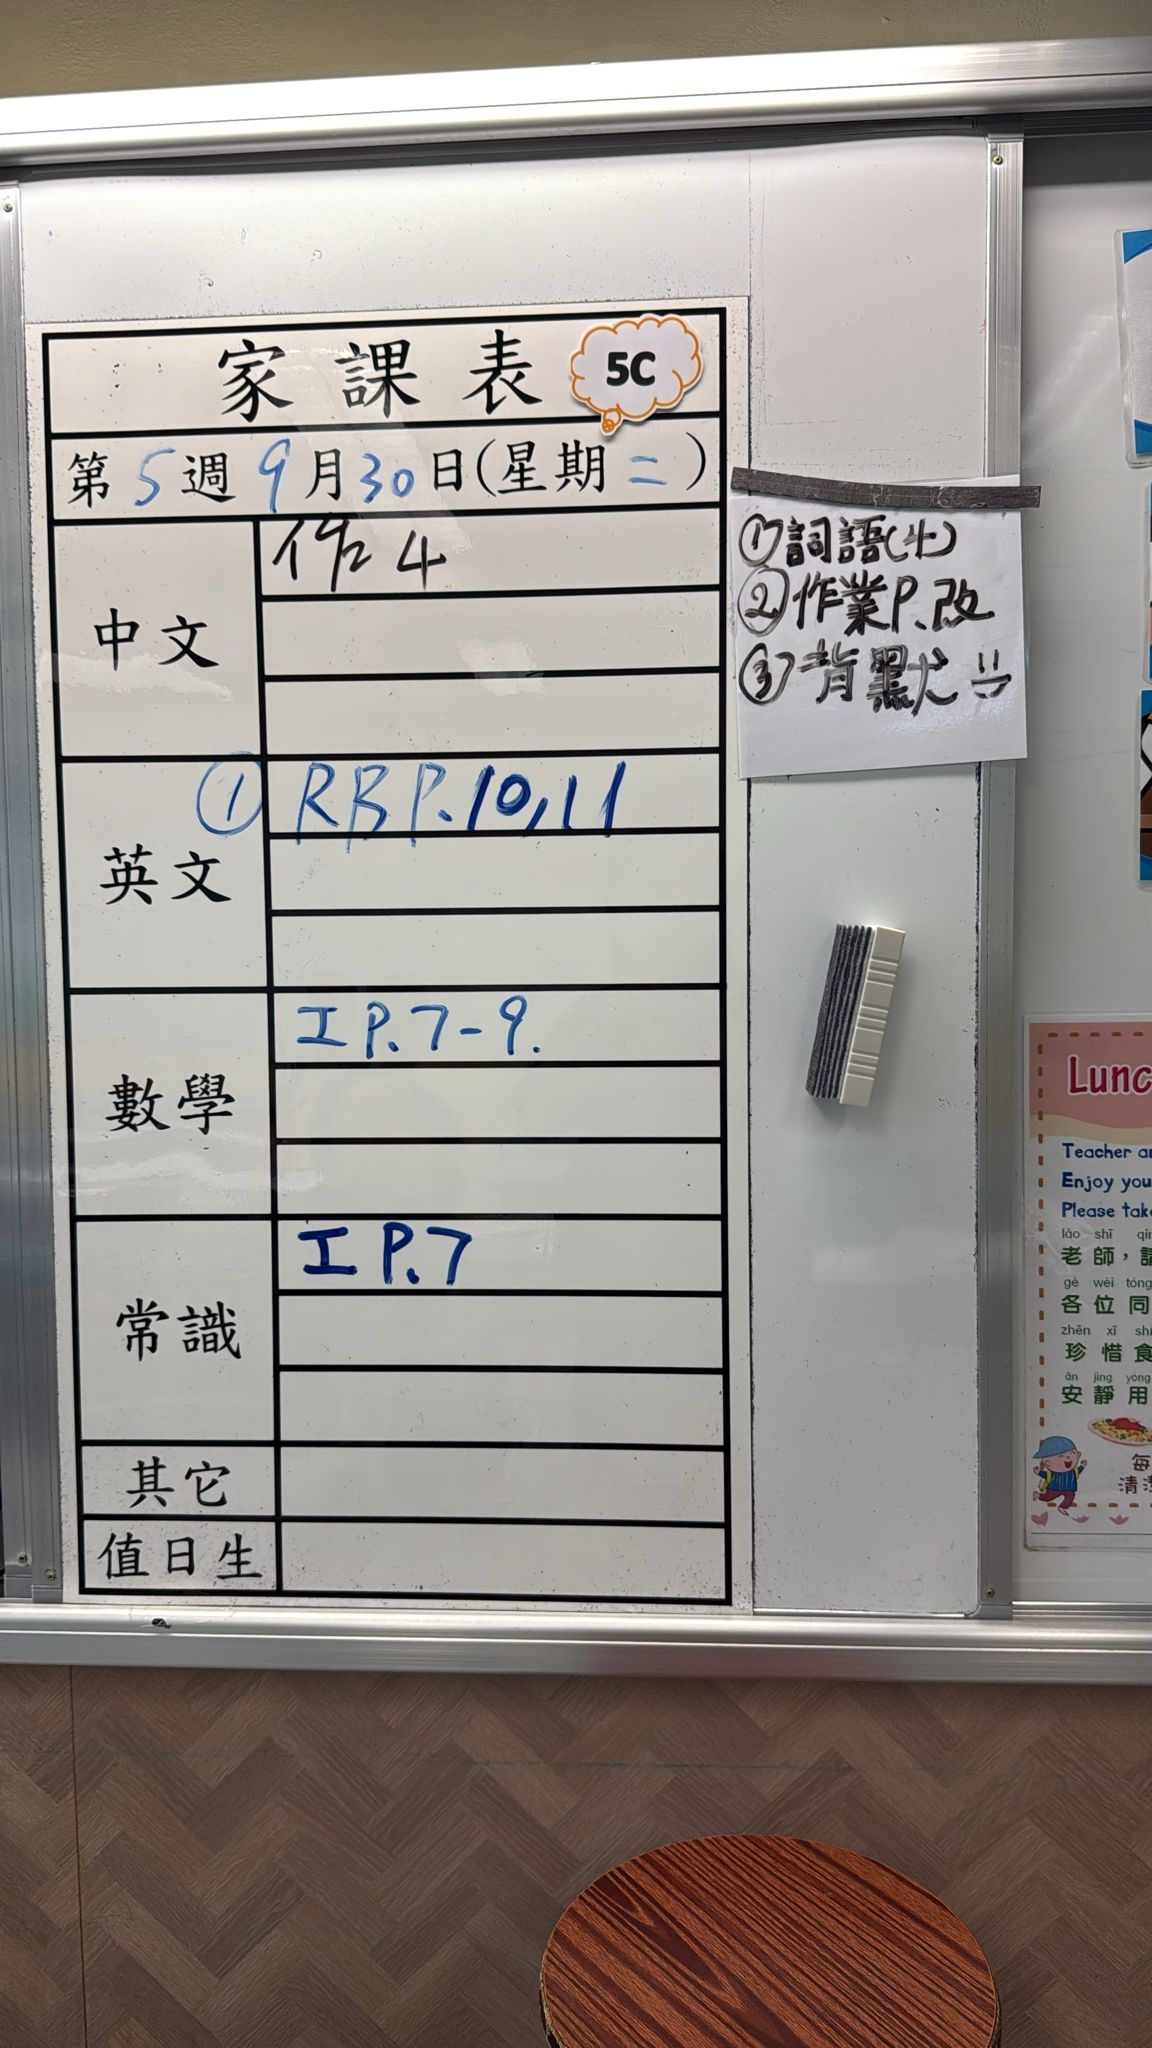 家課表 5C
第5週9月30日(星期二)
中文
作4
①詞語(4)
②作業P.改
③背默
英文
① RB P.10,11
數學
工 P.7-9.
常識
工 P.7
其它
值日生
Lunc
Teacher a
Enjoy you
Please tak
lǎo shī qǐn
老師，請
gè wèi tóng
各位同
zhēn xī shí
珍惜食
ān jìng yòng
安靜用
每
清潔